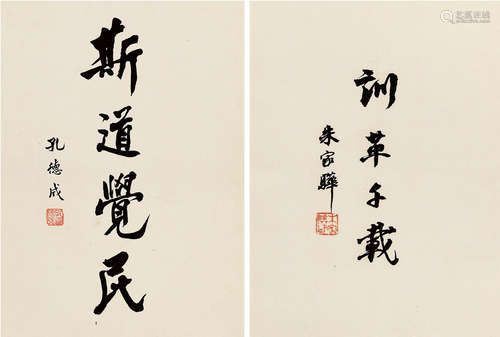 斯道覺民
孔德成
訓垂千載
朱家驊